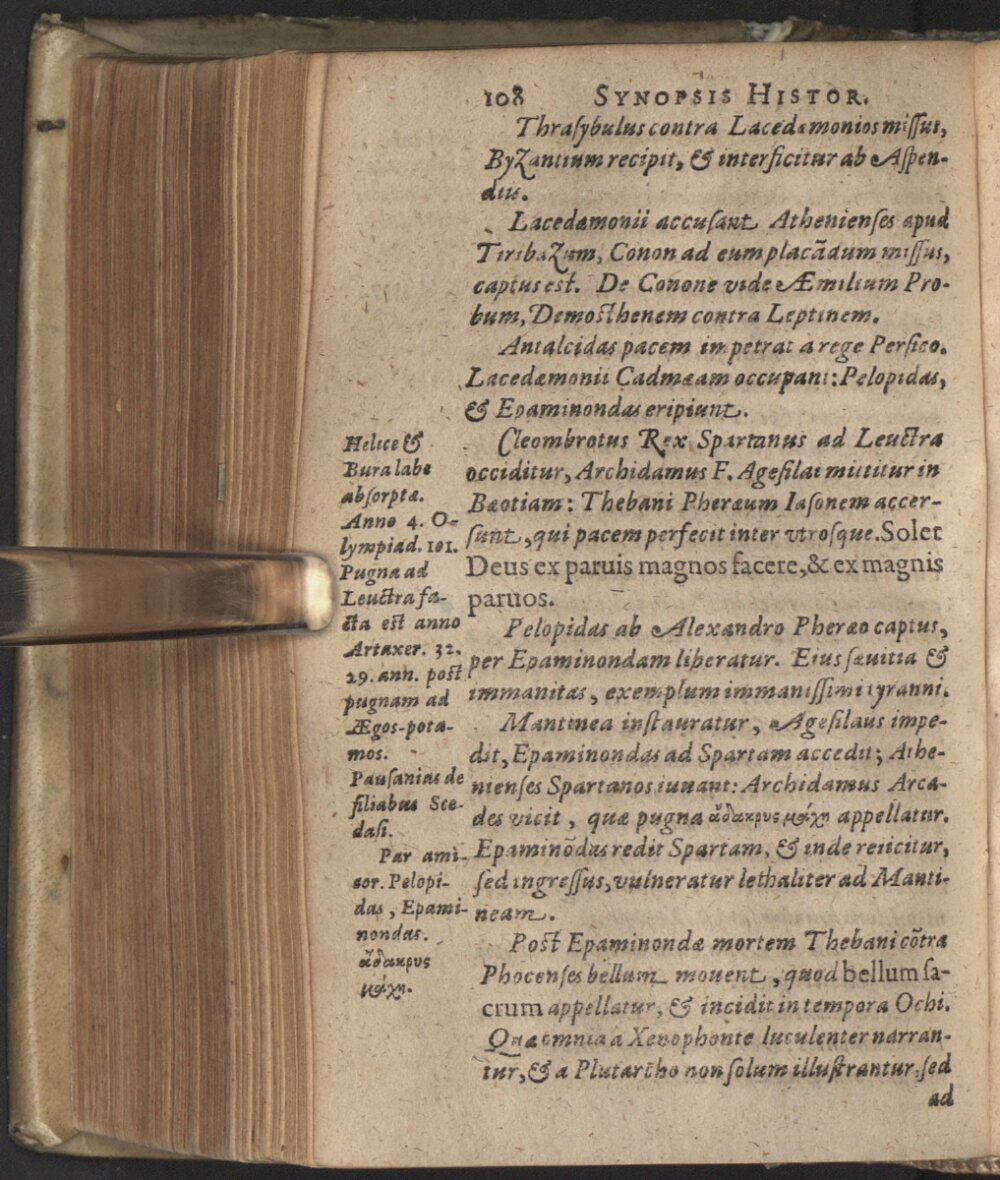 108 SYNOPSIS HISTOR.
Thraſybulus contra Lacedæmonios miſſus,
Byzantium recipit, & interficitur ab Aſpen-
diis.
Lacedæmonii accuſant Athenienſes apud
Tiribazum, Conon ad eum placãdum miſſus,
captus est. De Conone vide Æmilium Pro-
bum, Demosthenem contra Leptinem.
Antalcidas pacem impetrat a rege Perſico.
Lacedæmonii Cadmæam occupant: Pelopidas,
& Epaminondas eripiunt.
Cleombrotus Rex Spartanus ad Leuctra
occiditur, Archidamus F. Ageſilai mittitur in
Bæotiam: Thebani Pheræum Iaſonem accer-
ſunt, qui pacem perfecit inter vtroſque. Solet
Deus ex paruis magnos facere, & ex magnis
paruos.
Pelopidas ab Alexandro Pheræo captus,
per Epaminondam liberatur. Eius ſæuitia &
immanitas, exemplum immaniſſimi tyranni.
Mantinea inſtauratur, Ageſilaus impe-
dit, Epaminondas ad Spartam accedit; Athe-
nienſes Spartanos iuuant: Archidamus Arca-
des vicit, quæ pugna ἄδακρυς μάχη appellatur.
Epaminõdas redit Spartam, & inde reiicitur,
ſed ingreſſus, vulneratur lethaliter ad Manti-
neam.
Post Epaminondæ mortem Thebani cõtra
Phocenſes bellum mouent, quod bellum ſa-
crum appellatur, & incidit in tempora Ochi.
Quæ omnia a Xenophonte luculenter narran-
tur, & a Plutarcho non ſolum illuſtrantur, ſed
ad
Helice &
Bura labe
abſorptæ.
Anno 4. O-
lympiad. 101.
Pugna ad
Leuctra fa-
cta est anno
Artaxer. 32.
29. ann. post
pugnam ad
Ægos-pota-
mos.
Pauſanias de
filiabus Sce-
daſi.
Par ami-
cor. Pelopi-
das, Epami-
nondas.
ἄδακρυς
μάχη.